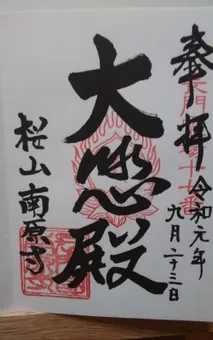 奉拝
令和元年
九月二十三日
大悲殿
桜山南原寺